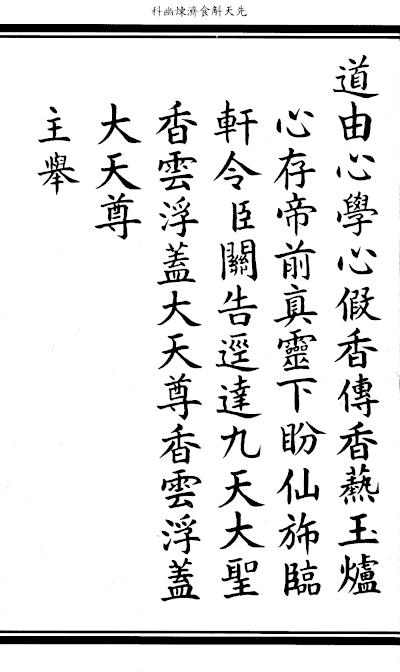 先天斛食濟煉幽科
道由心學心假香傳香爇玉爐
心存帝前真靈下盼仙斾臨
軒令臣關告逕達九天大聖
香雲浮蓋大天尊香雲浮蓋
大天尊
主舉